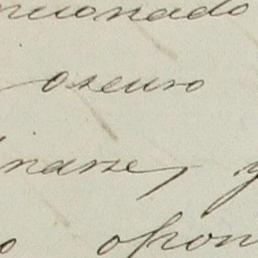 ncionado
oscuro
inarse, y
o opon